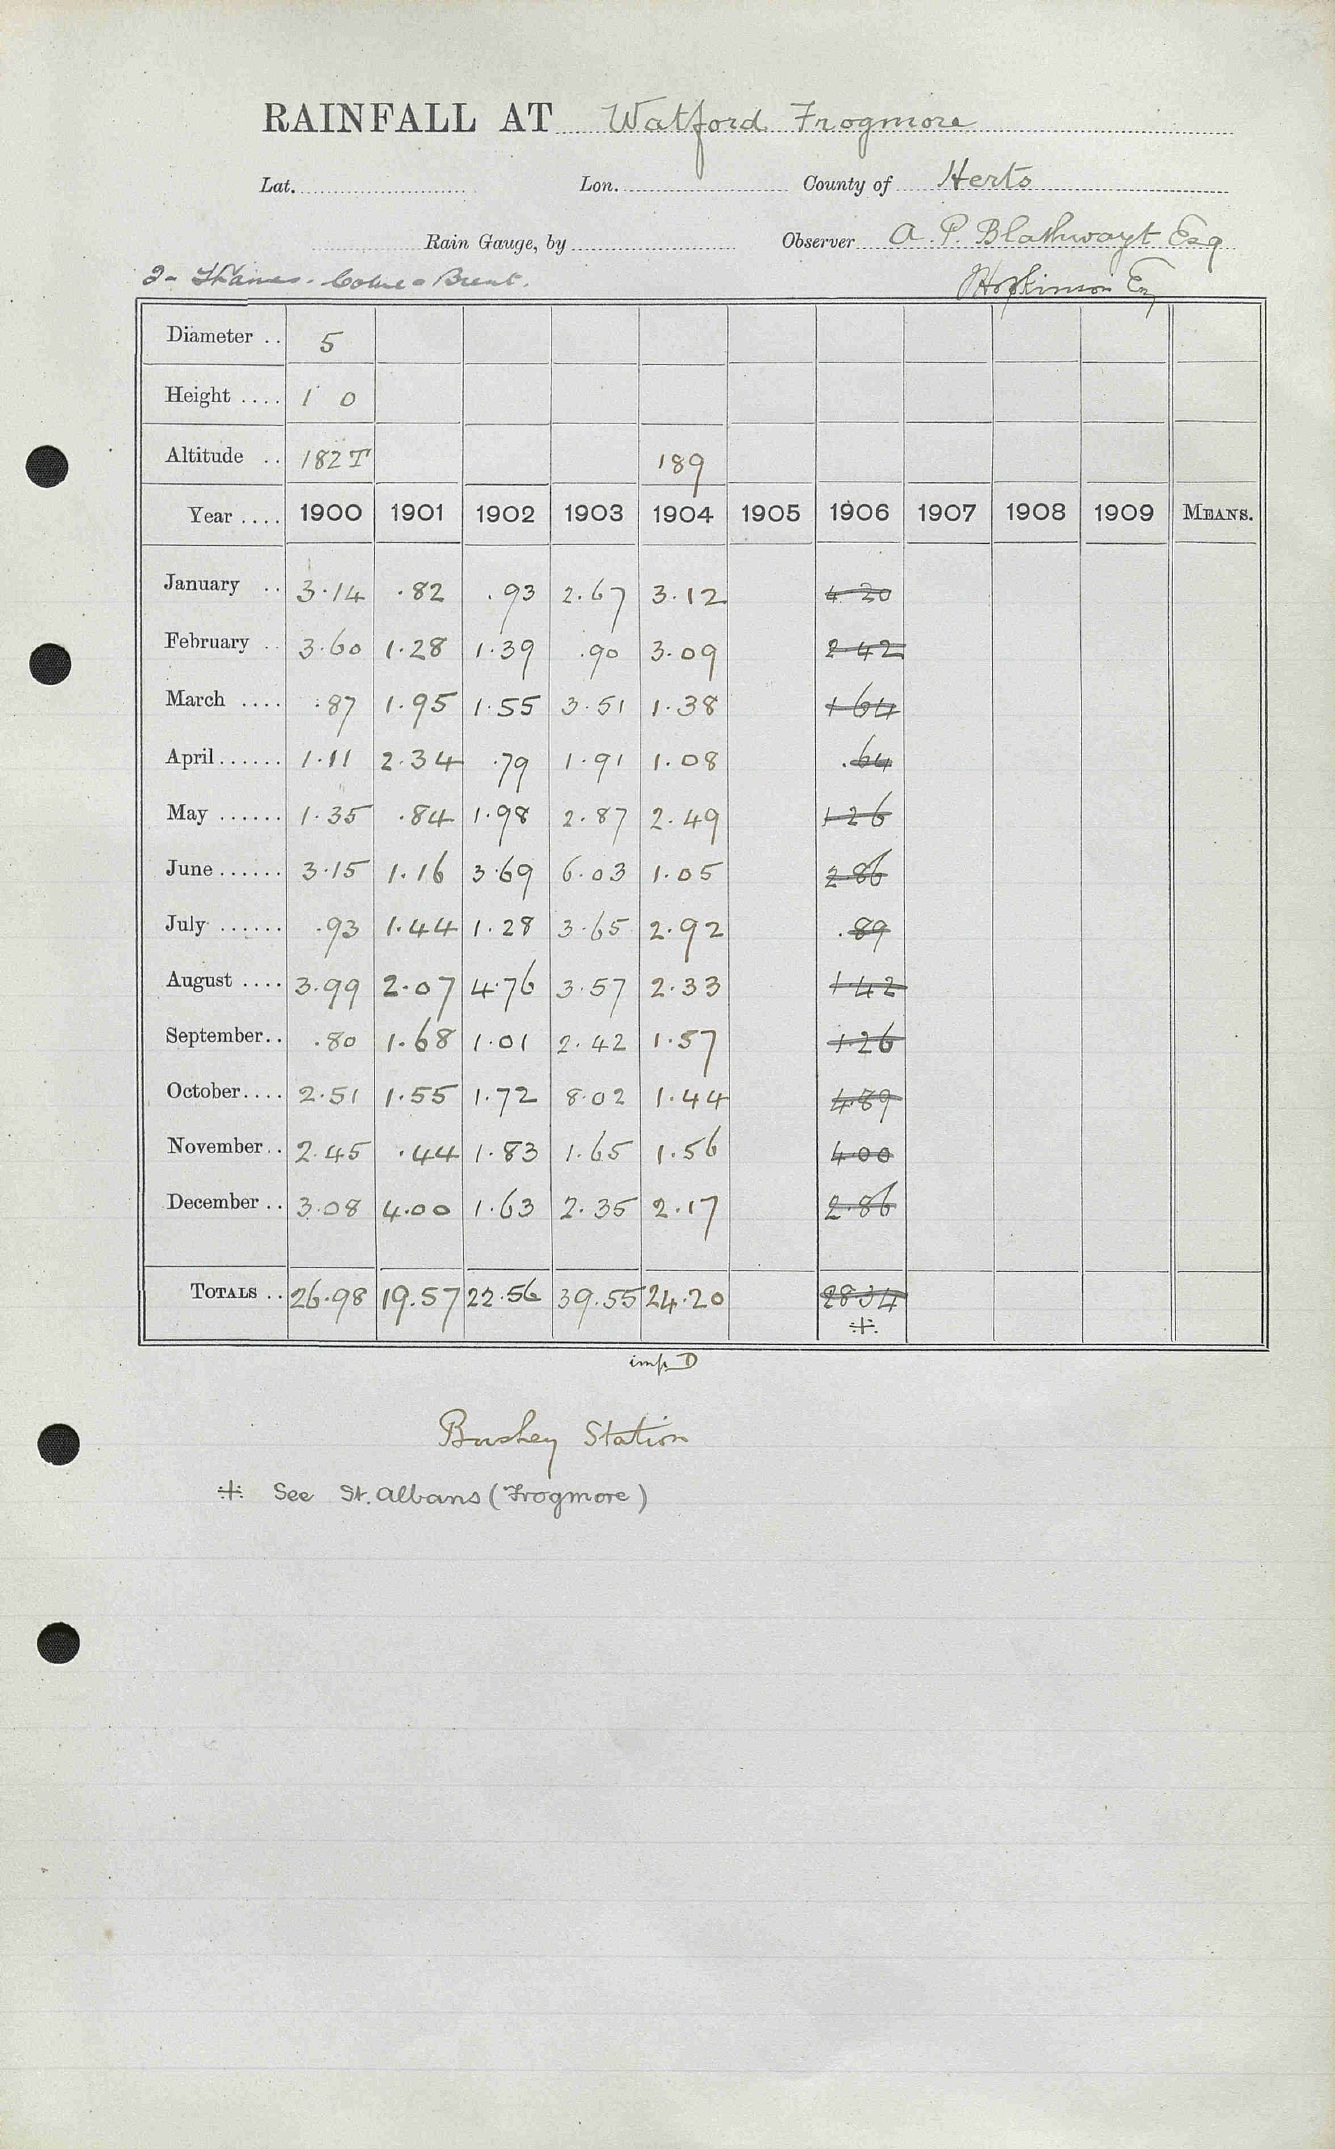 RAINFALL AT Watford Frogmore
Lat. Lon. County of Herts
Rain Gauge, by Observer A. P. Blathwayt Esq
2 - Thames. Colne & Brent. J Hopkinson Esq
Diameter .. 5
Height .... 1 0
Altitude .. 182 T 189
Year .... 1900 1901 1902 1903 1904 1905 1906 1907 1908 1909 MEANS.
January .. 3.14 .82 .93 2.67 3.12 4.20
February .. 3.60 1.28 1.39 .90 3.09 2.42
March .... .87 1.95 1.55 3.51 1.38 1.64
April ...... 1.11 2.34 .79 1.91 1.08 .64
May ...... 1.35 .84 1.98 2.87 2.49 1.26
June ...... 3.15 1.16 3.69 6.03 1.05 2.86
July ...... .93 1.44 1.28 3.65 2.92 .89
August .... 3.99 2.07 4.76 3.57 2.33 1.42
September.. .80 1.68 1.01 2.42 1.57 1.26
October.... 2.51 1.55 1.72 8.02 1.44 4.89
November.. 2.45 .44 1.83 1.65 1.56 4.00
December .. 3.08 4.00 1.63 2.35 2.17 2.86
TOTALS .. 26.98 19.57 22.56 39.55 24.20 28.34
imp. D
Bushey Station
See St. Albans (Frogmore)